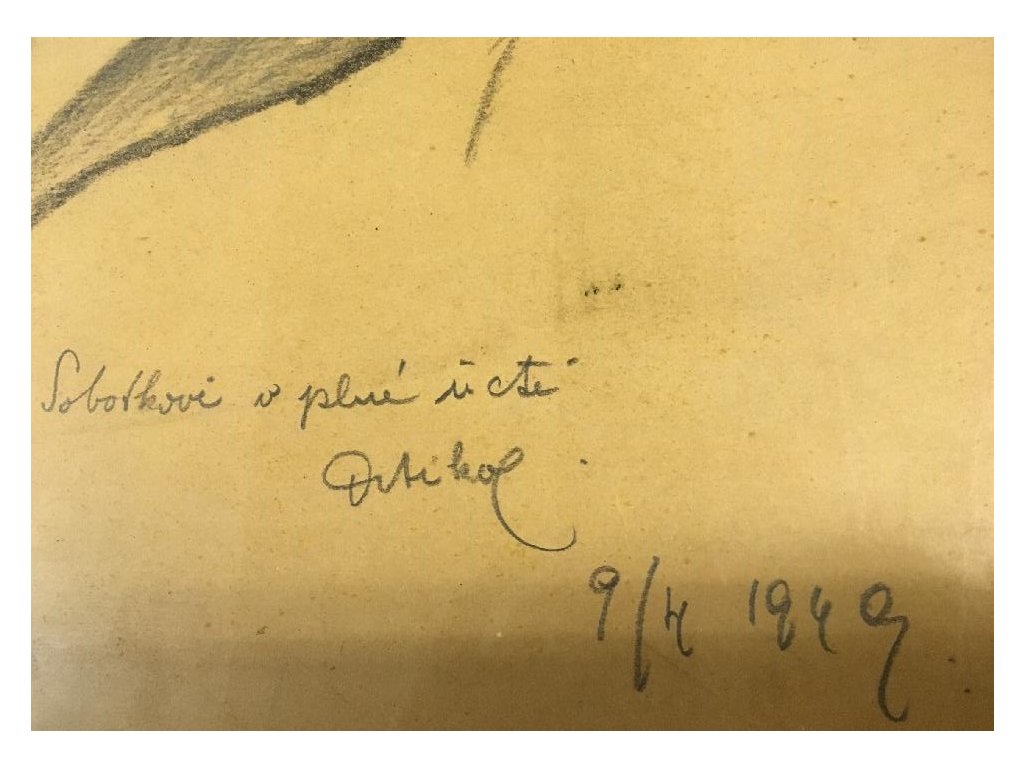 Sobotkovi v plné úctě
Drtikol
9/4 1949